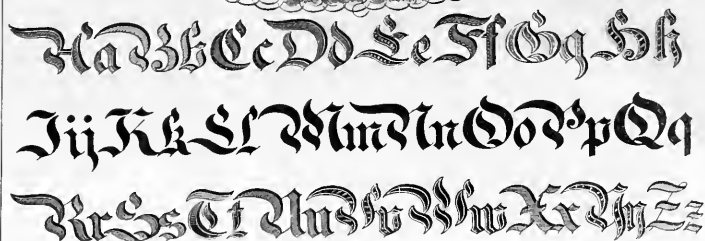 Aa Bb Cc Dd Ee Ff Gg Hh
Iij Kk Ll Mm Nn Oo Pp Qq
Rr Ss Tt Uu Vv Ww Xx Yy Zz